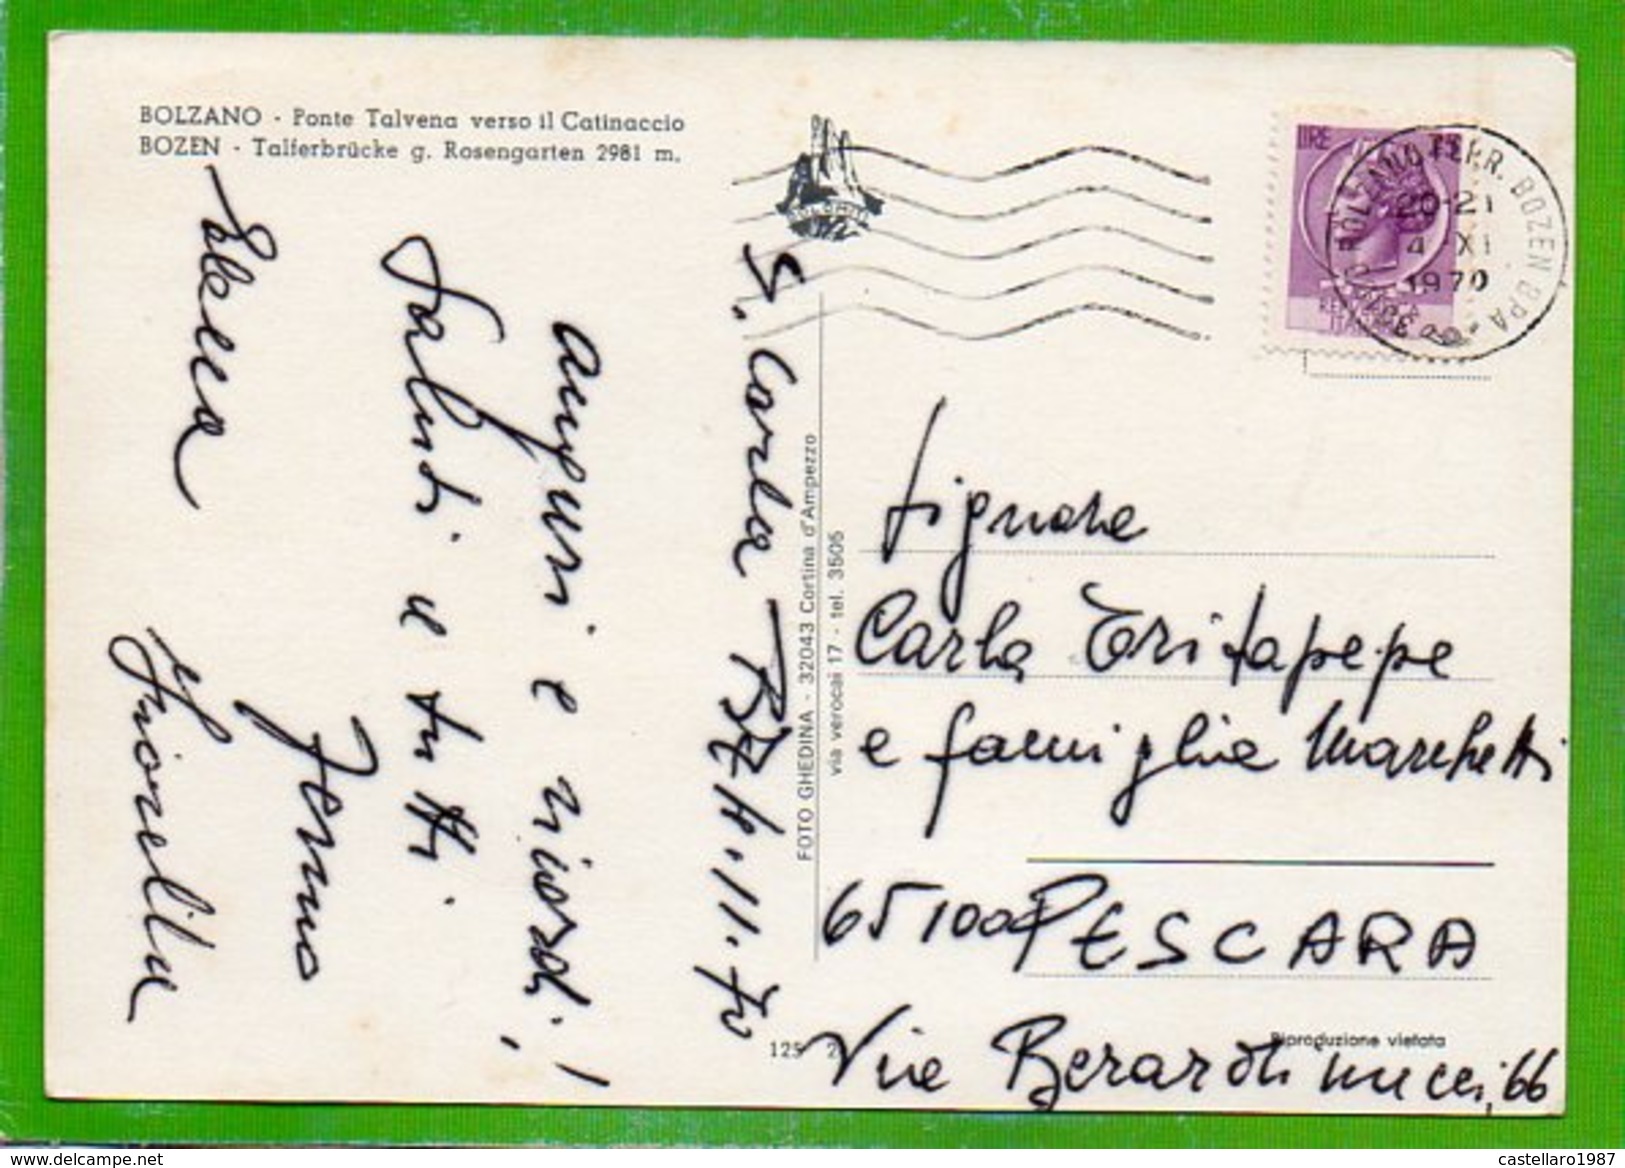 BOLZANO - Ponte Talvena verso il Catinaccio
BOZEN - Talferbrücke g. Rosengarten 2981 m.
S. Carla BZ 4.11.70
auguri e ricordi,!
Saluti e tutti
Fermo
Fiorella
DOLOMITI
FOTO GHEDINA - 32043 Cortina d'Ampezzo
via verocai 17 - tel. 3505
125
LIRE
BOLZANO FERR. BOZEN BPA
20-21
4 XI
1970
Signora
Carla Tritapepe
e famiglia Marchetti
65100 PESCARA
Via Berardinucci, 66
Riproduzione vietata
www.delcampe.net
castellaro1987